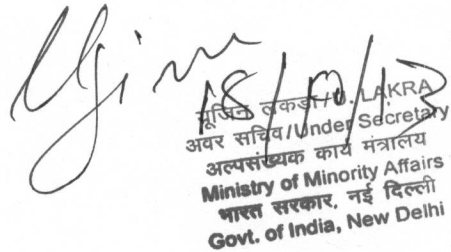 18/10/13
यूजिन लकड़ा/U. LAKRA
अवर सचिव/Under Secretary
अल्पसंख्यक कार्य मंत्रालय
Ministry of Minority Affairs
भारत सरकार, नई दिल्ली
Govt. of India, New Delhi